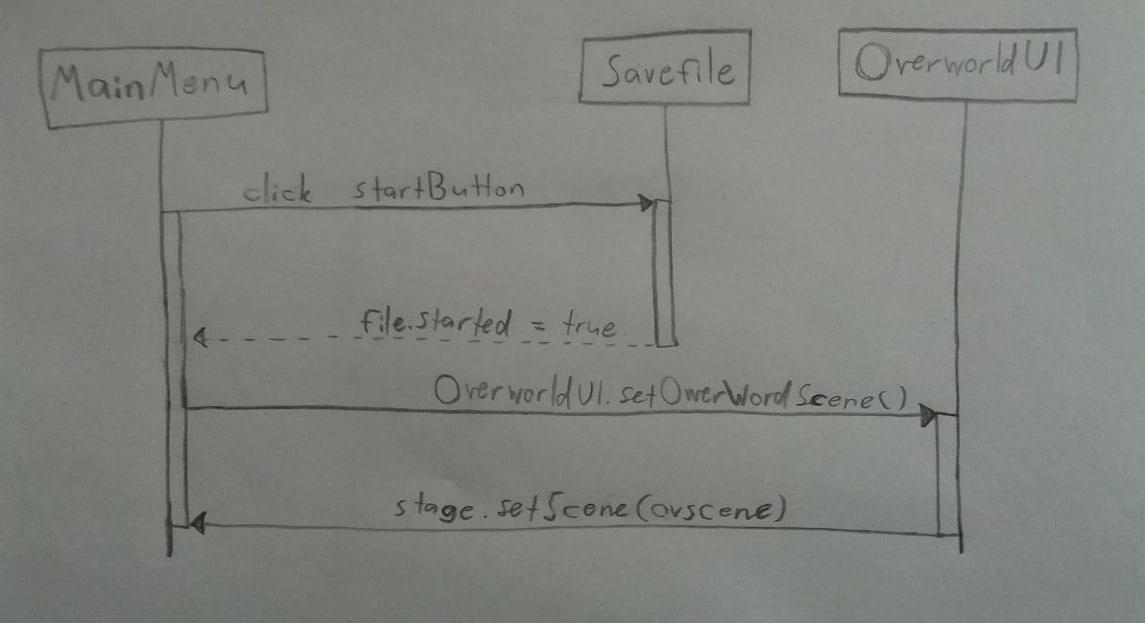 MainMenu
Savefile
OverworldUI
click startButton
file.started = true
OverworldUI.setOwerWordScene()
stage.setScene(ovscene)